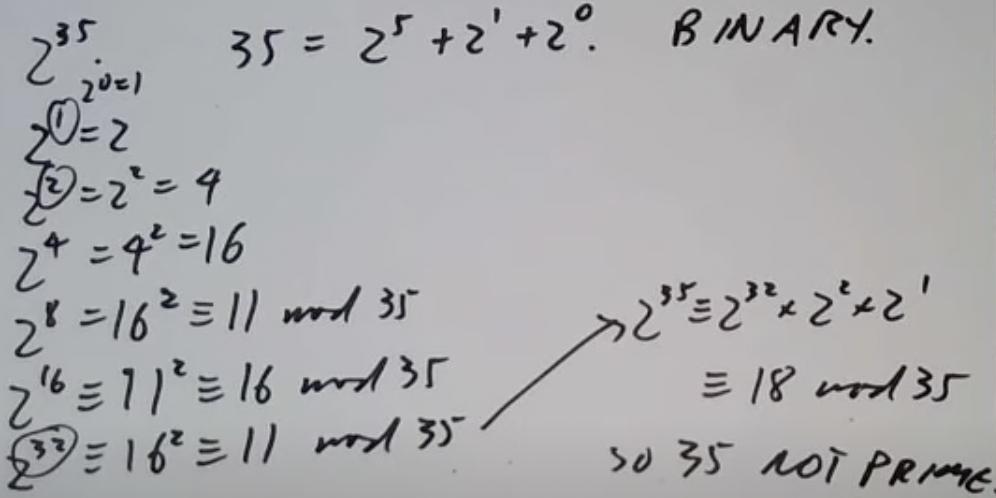 2³⁵. 35 = 2⁵ + 2¹ + 2⁰. BINARY.
2⁰=1
2¹ = 2
2² = 2² = 4
2⁴ = 4² = 16
2⁸ = 16² ≡ 11 mod 35
2¹⁶ ≡ 11² ≡ 16 mod 35
2³² ≡ 16² ≡ 11 mod 35
2³⁵ ≡ 2³² × 2² × 2¹
≡ 18 mod 35
so 35 NOT PRIME.